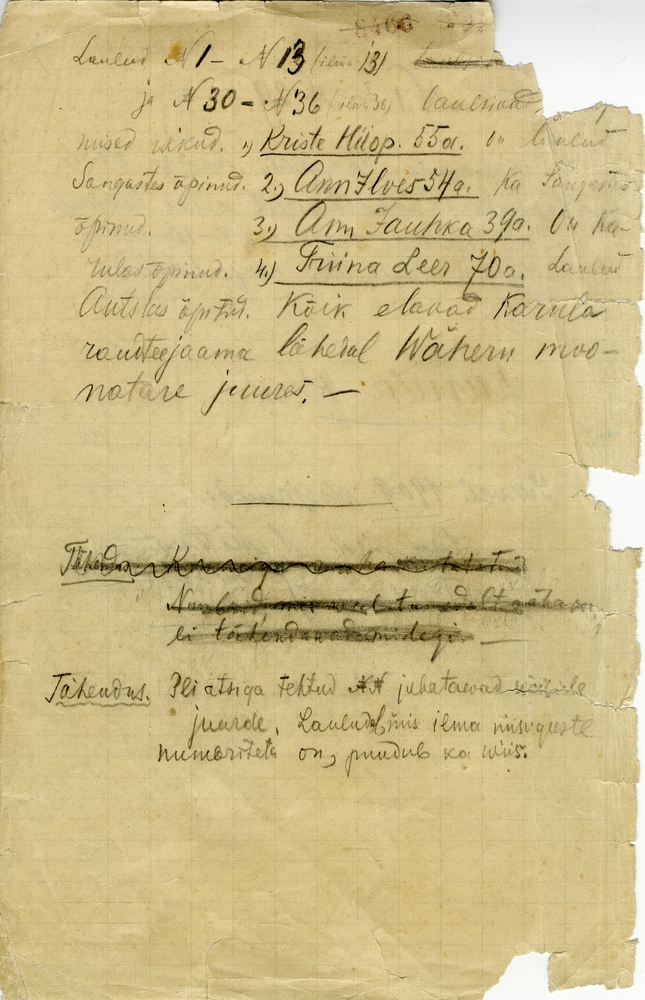 8466
Laulud N 1 – N 13 (ilma 13)
ja N 30 – N 36 (ilma 36) laulsivad
mised isikud. 1,) Kriste Hüop. 55a. On laulud
Sangastes õpinud. 2.) Ann Ilves 54a. Ka Sangastes
õpinud. 3.) Ann Jauhka 39a. On Ka-
rulas õpinud. 4.) Triina Leer 70a. Laulud
õpitud. Kõik elavad Karula
raudteejaama lähedal Wäheru moo-
natare juures. —
Tähendus
ei tähenda
Tähendus. Pliiatsiga tehtud NN juhatavad wiiside
juurde. Laulud, mis ilma niisuguste
numbriteta on, puudub ka wiis.